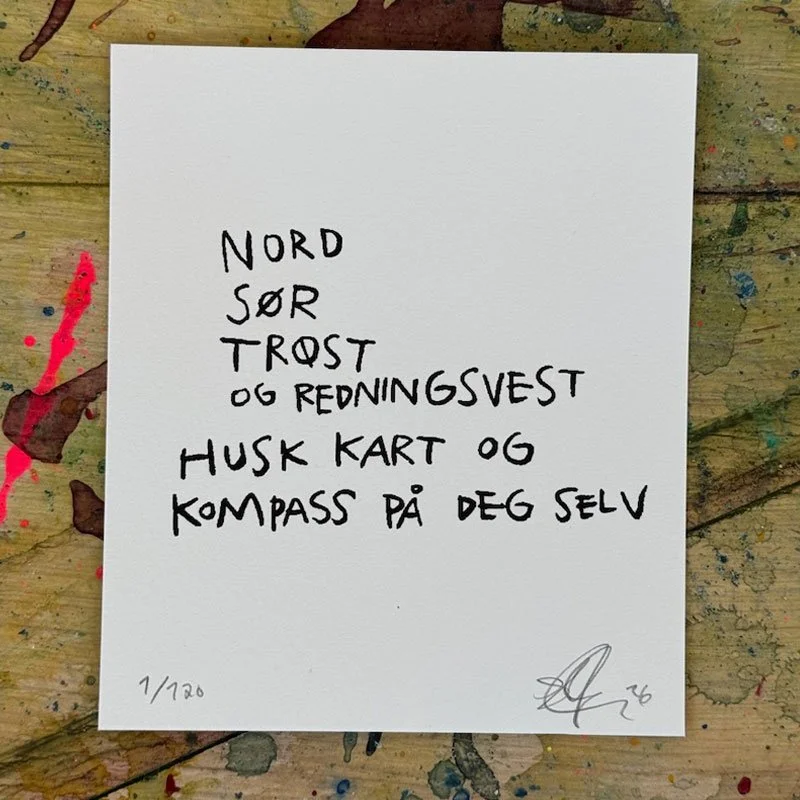 NORD
SØR
TRØST
OG REDNINGSVEST
HUSK KART OG
KOMPASS PÅ DEG SELV
1/120
26